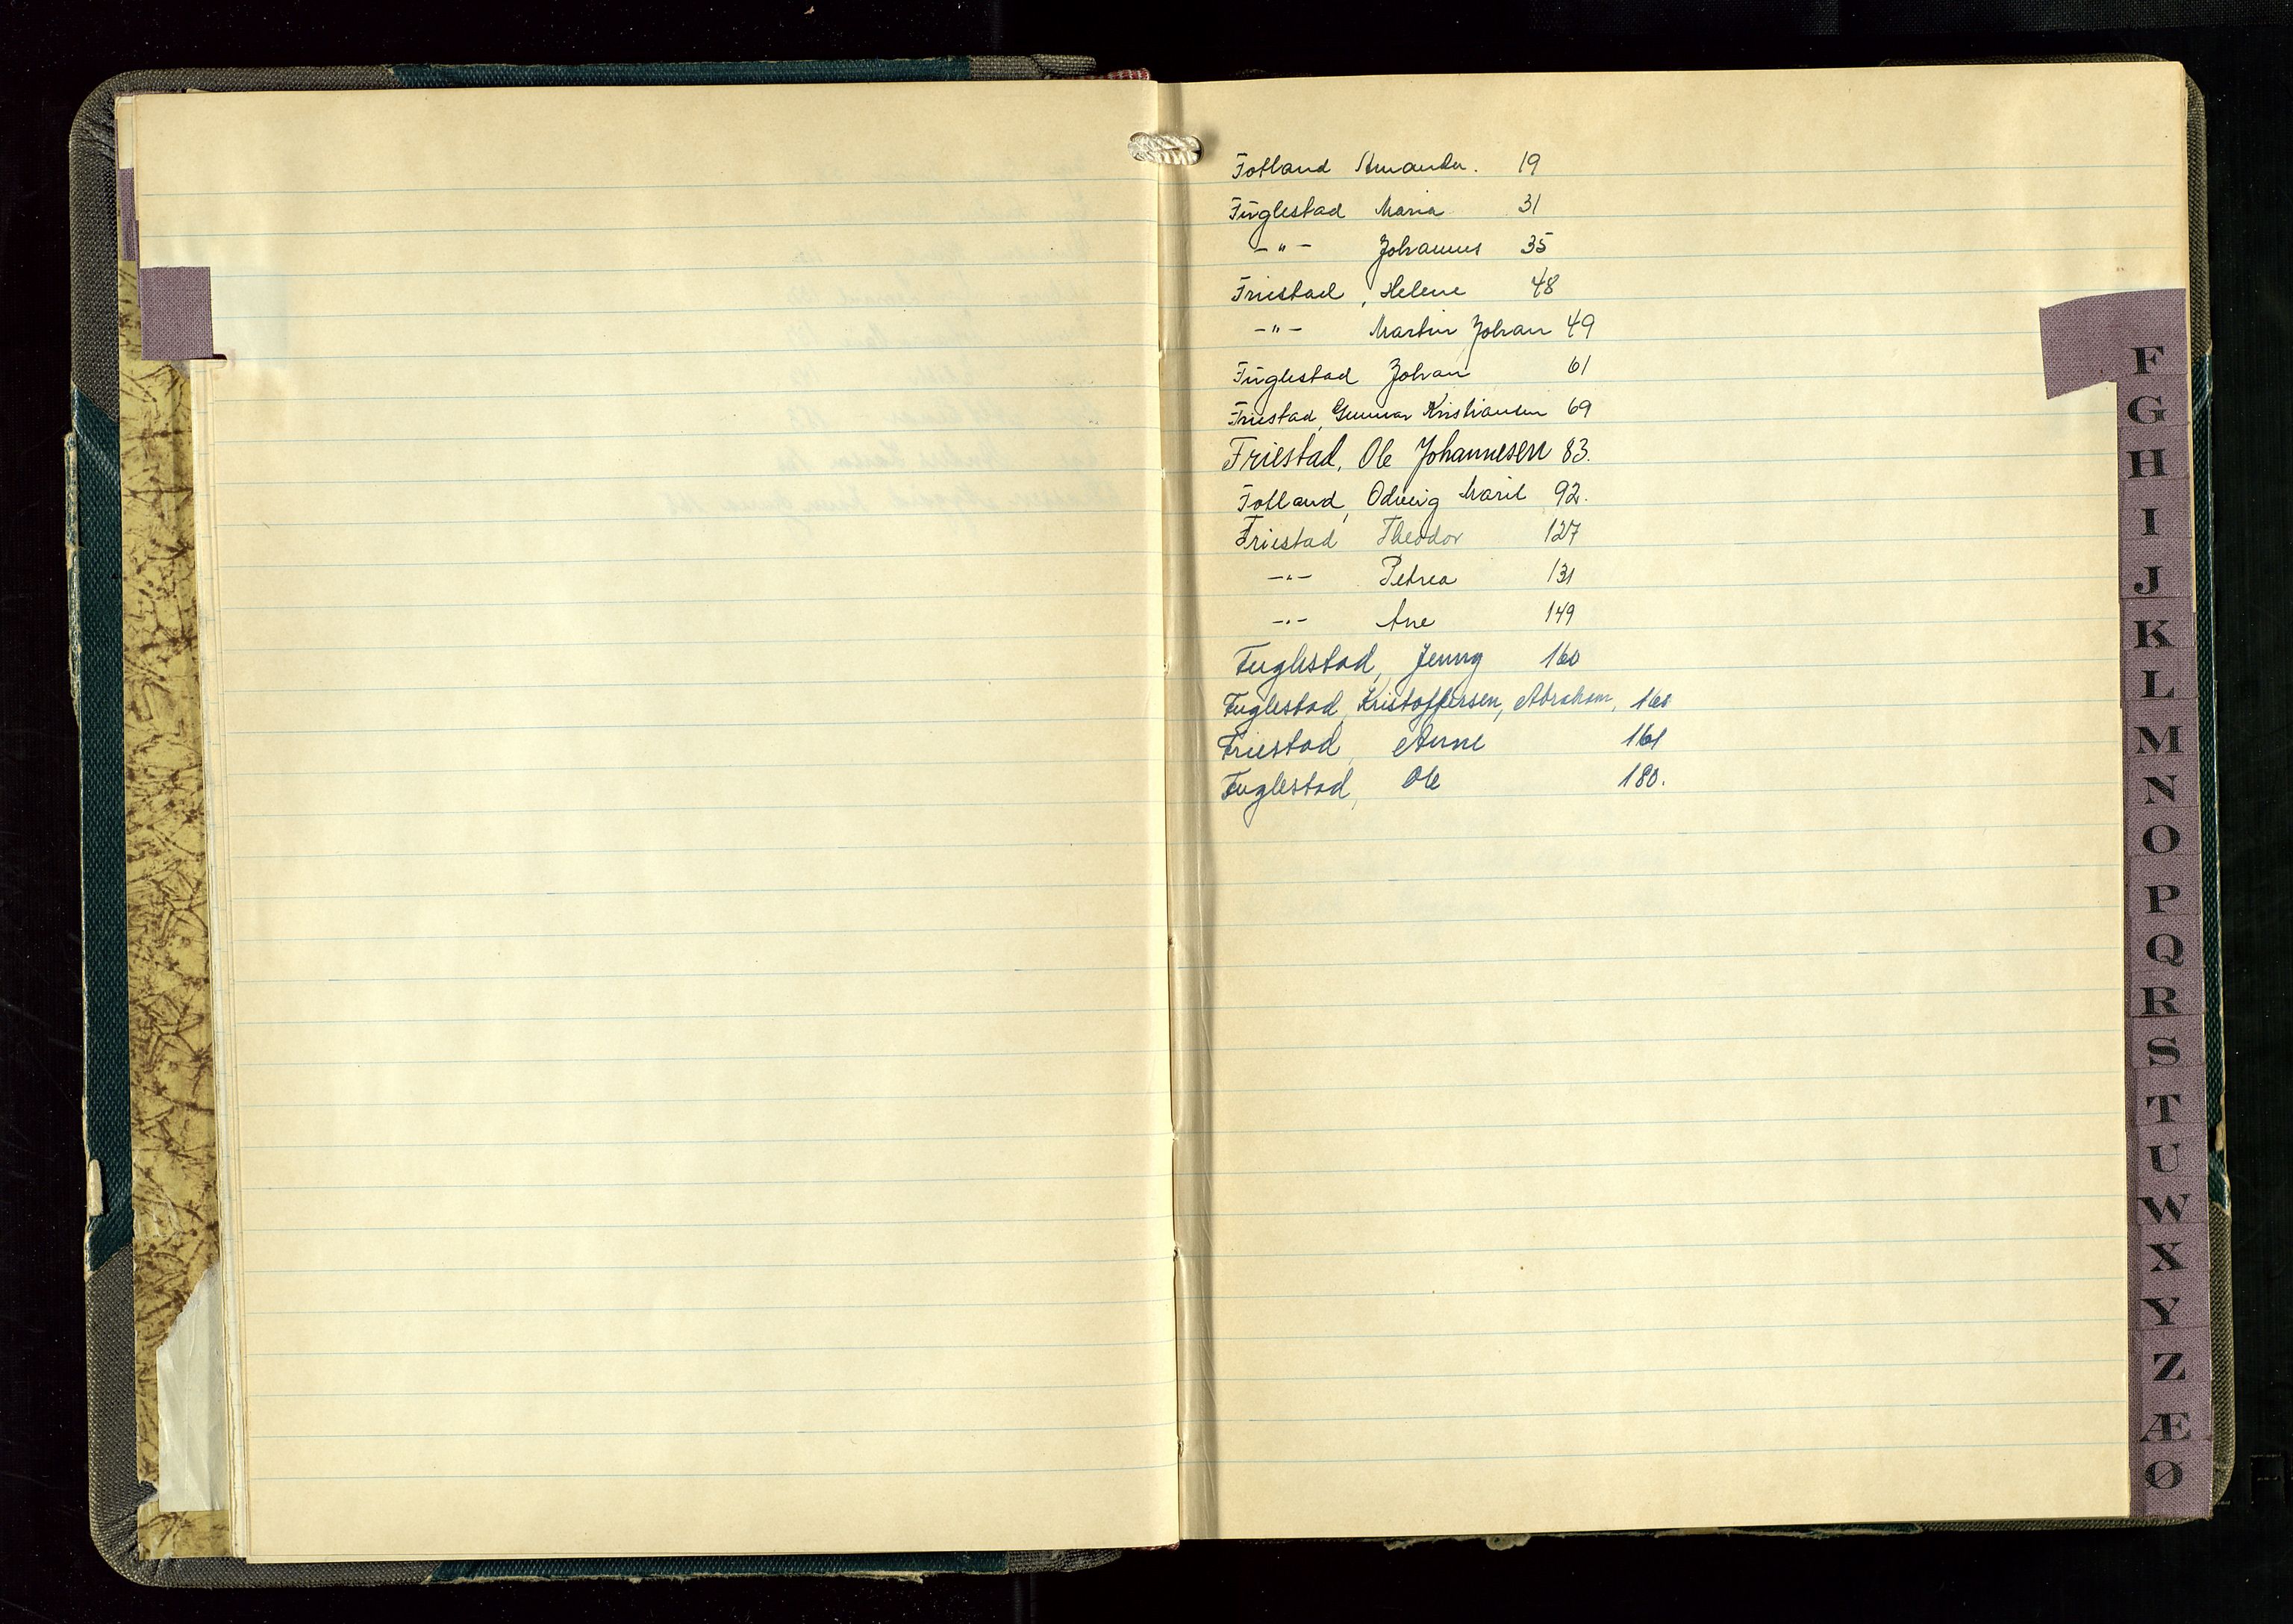 Fotland Amanda. 19
Fuglestad Maria 31
-"- Johannes 35
Friestad, Helene 48
-"- Martin Johan 49
Fuglestad Johan 61
Friestad, Gunnar Kristiansen 69
Friestad, Ole Johannesen 83.
Fotland, Odveig Marit 92.
Friestad Theodor 127
-"- Petrea 131
-"- Ane 149
Fuglestad, Jenny 160
Fuglestad, Kristoffersen, Abraham, 160
Friestad, Anne 161
Fuglestad, Ole 180.
F
G
H
I
J
K
L
M
N
O
P
Q
R
S
T
U
W
X
Y
Z
Æ
Ø